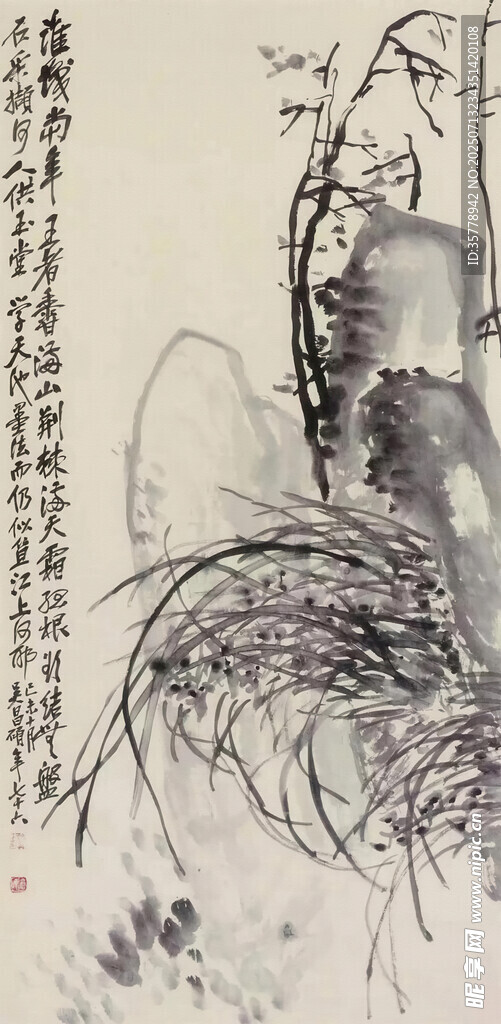 誰識當年王者香滿山荆棘滿天霜孤根結無盤
石采擷何人供玉堂學天池墨法而仍似江上何邪
己未十月
吳昌碩年七十六
ID:35778942 NO:20250713234351420108
昵享网 www.nipic.cn